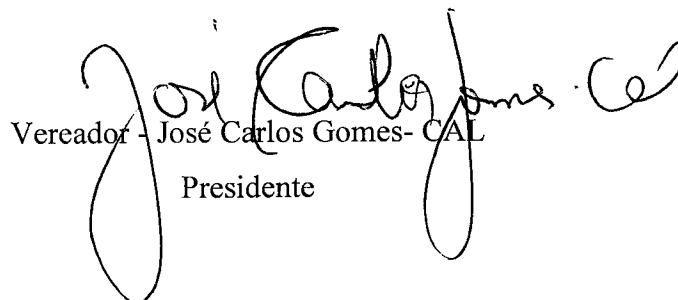 José Carlos Gomes
Vereador - José Carlos Gomes- CAL
Presidente